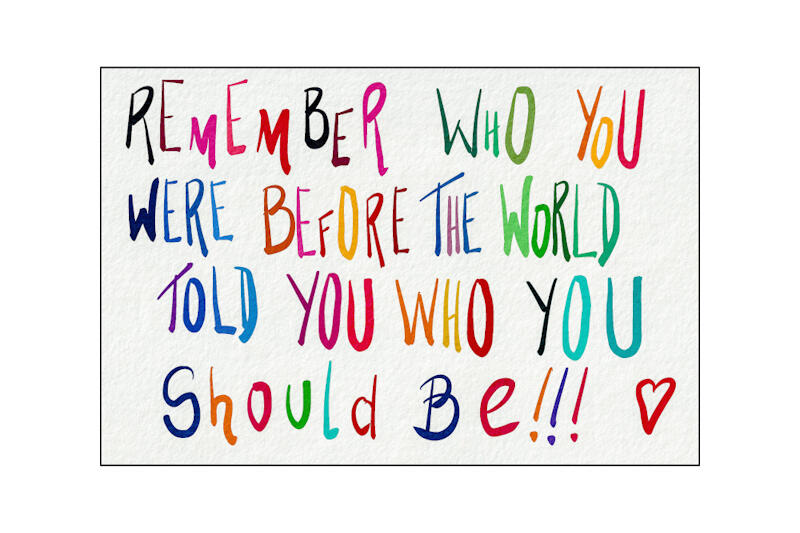 REMEMBER WHO YOU
WERE BEFORE THE WORLD
TOLD YOU WHO YOU
Should Be!!!